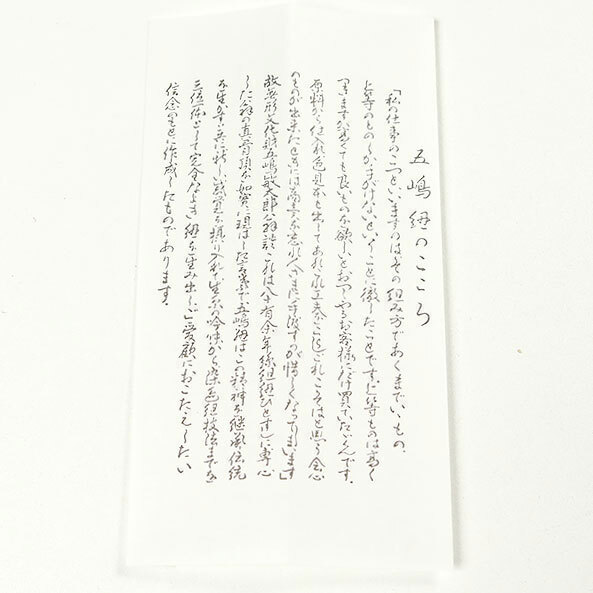 五嶋紐のこころ
「私の仕事のこつといいますのは、その組み方であくまでいいもの、
上等のものしか手がけないということに徹したことです。上等ものは高く
つきますが、高くても良いものを欲しいとおっしゃるお客様にだけ買っていただくんです。
原料から仕入れ、色見本も出してあれこれ工夫をこらし、これこそはと思う会心
のものが出来たときには商売を忘れ人さまに手渡すのが惜しくなってしまいます」
故無形文化財五嶋敏太郎翁談 これは八十有余年絲組紐ひとすじに専心
した翁の真骨頂を如実に現はした言葉で五嶋紐はこの精神を継承、伝統
を生かすと共に新しい感覚を摂り入れて生糸の吟味から染色組技法までを
三位一体として完全なよき紐を生み出し、ご愛顧におこたえしたい
信念のもとに作成したものであります。